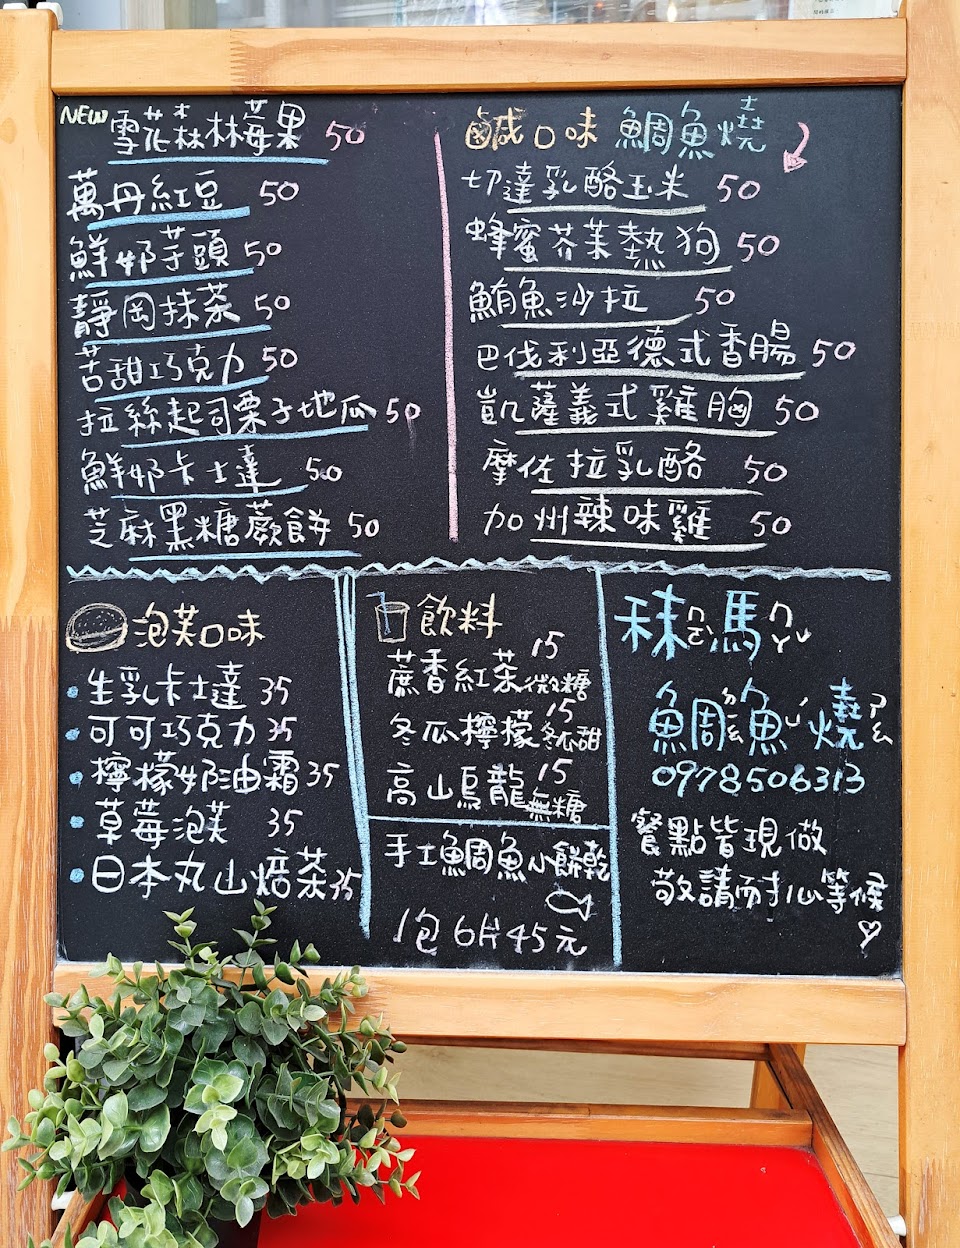 NEW 雪花森林莓果 50
萬丹紅豆 50
鮮奶芋頭 50
靜岡抹茶 50
苦甜巧克力 50
拉絲起司栗子地瓜 50
鮮奶卡士達 50
芝麻黑糖蕨餅 50
鹹口味 鯛魚燒
切達乳酪玉米 50
蜂蜜芥茉熱狗 50
鮪魚沙拉 50
巴伐利亞德式香腸 50
凱薩義式雞胸 50
摩佐拉乳酪 50
加州辣味雞 50
泡芙口味
生乳卡士達 35
可可巧克力 35
檸檬奶油霜 35
草莓泡芙 35
日本丸山焙茶 35
飲料
蔗香紅茶 15 微糖
冬瓜檸檬 15 冬瓜甜
高山烏龍 15 無糖
手工鯛魚小餅乾
1包6片45元
馬
鯛魚燒
0978506313
餐點皆現做
敬請耐心等候